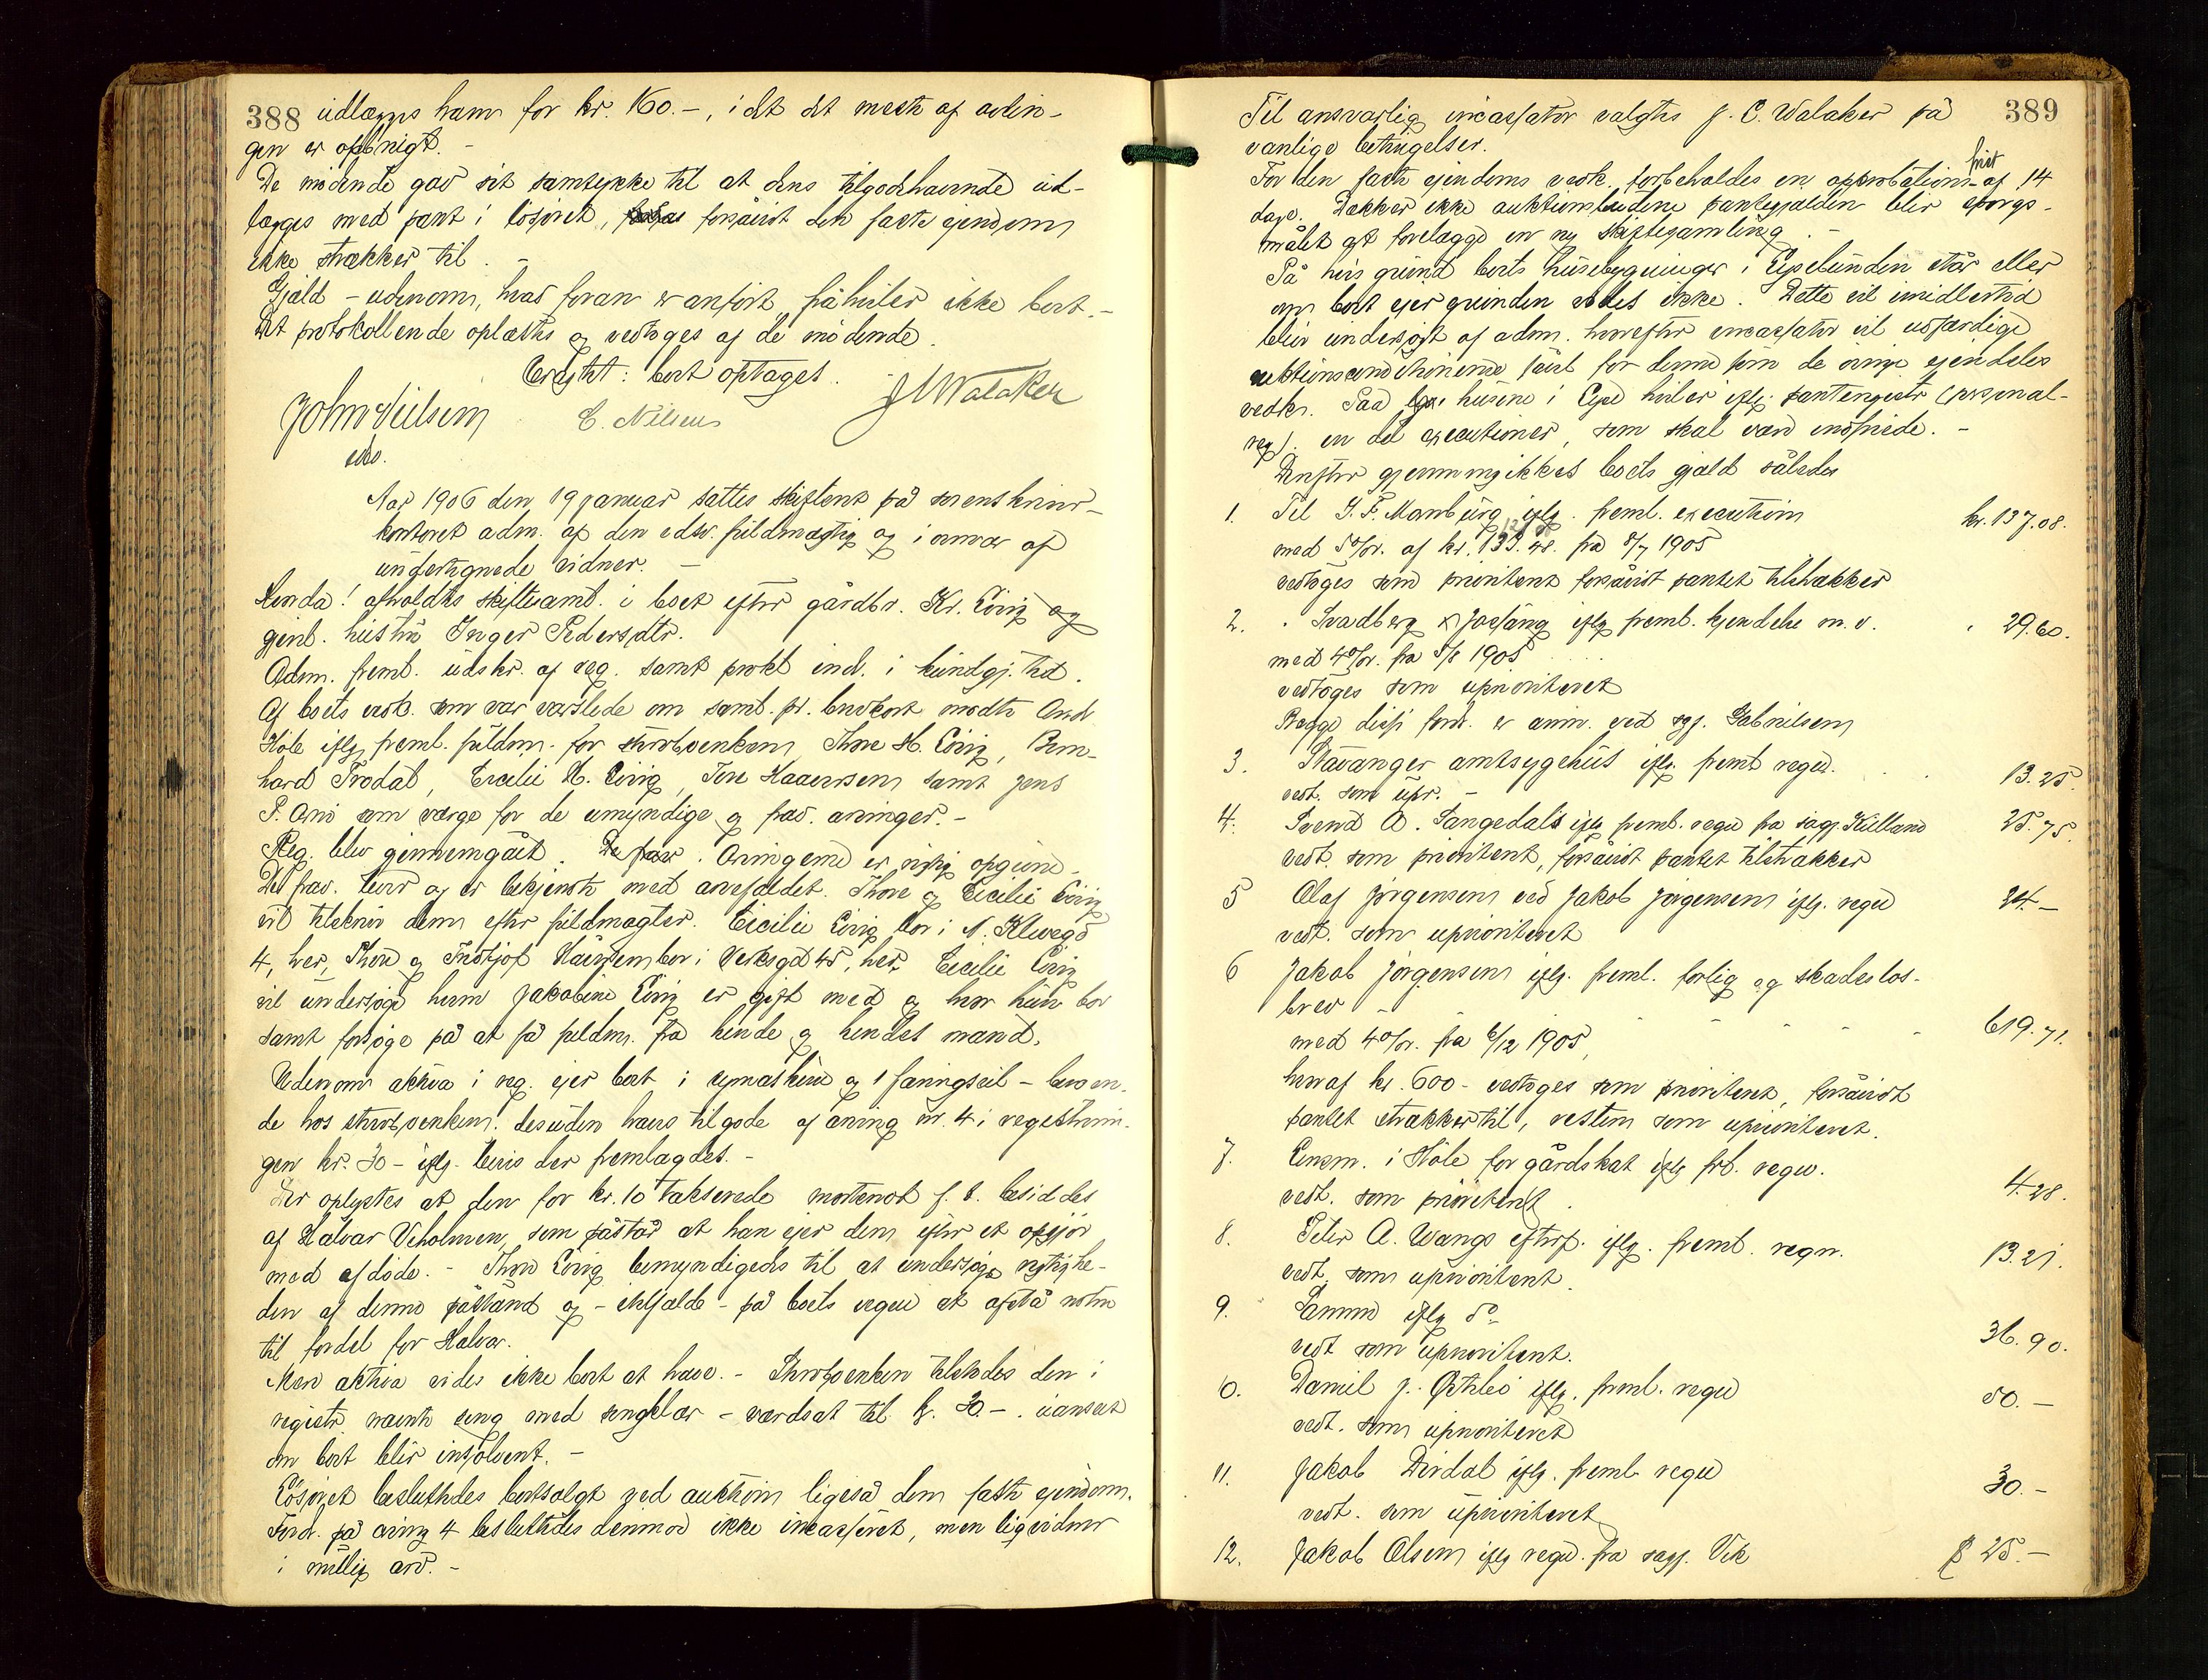 388 udlægges ham for kr. 160.-, idet det meste af avlin-
gen er opbrugt. -
De mødende gav sit samtykke til at dens tilgodehavende ud-
lægges med pant i løsøret, forsåvidt den faste ejendom
ikke strækker til. -
Gjæld - udenom, hvad foran er anført påhviler ikke boet. -
Det protokollerede oplæstes og vedtoges af de mødende.
Eragtet: boet optages. -
John Nilsen C. Nilsen J. Walaker
Aar 1906 den 19 januar sattes skifteret på sorenskriver-
kontoret adm. af den edsv. fuldmægtig og i nærvær af
undertegnede vidner. -
Hvorda! afholdtes skiftesaml. i boet efter gårdbr. Kr. Eivig og
gjenl. hustru Inger Pedersdtr.
Adm. freml. udskr. af reg. samt prokl. ind. i kundgj. tid.
Af boets vedk. som var varslede om saml. pr. brevkort mødte And.
Høle iflg. freml. fuldm. for stervboenken, Thore H. Eivig, Bern-
hard Frodal, Cecilie H. Eivig, Tore Haaversen samt Jens
P. som værge for de umyndige og frav. arvinger. -
Reg. blev gjennemgået. Arvingerne er rigtig opgivne.
Det frav. lever og er bekjendt med arvefaldet. Thore og Cecilie Eivig
vil tilskrive dem efter fuldmagter. Cecilie Eivig bor i N.
4, her, Thore og Fridtjof bor i Verksgd 45, her. Cecilie Eivig
vil undersøge hvem Jakobine Eivig er gift med og hvor hun bor
samt forsøge på at få fuldm. fra hende og hendes mand.
Udenom aktiva i reg. ejer boet 1 symaskine og 1 færingseil - beroen-
de hos stervboenken! desuden haves tilgode af arving nr. 4 i registrerin-
gen kr. 30- iflg. bevis der fremlagdes. -
Der oplystes at den for kr. 10 takserede not f. t. besiddes
af Halvar Veholmen, som påstår at han ejer den efter et opgjør
med afdøde. - Thore Eivig bemyndigedes til at undersøge rigtighe-
den af denne påstand og - ihvfald - på boets vegne at afstå noten
til fordel for Halvar.
Mere aktiva vides ikke boet at have. - Stervboenken tilstedes den i
registr. nævnte seng med sengklær - værdsat til kr. 30.- uanseet
om boet blir insolvent. -
Løsøret besluttedes bortsolgt ved auktion ligeså den faste ejendom.
Fordr. på arving 4 besluttedes derimod ikke incasseret, men ligvidner
i mulig arv. -
389
Til ansvarlig incassator valgtes J. C. Walaker på
vanlige betingelser.
For den faste ejendoms vedk. forbeholdes en approbationsfrist af 14
dage. Dækker ikke auktionsbudene pantegjælden blir spørgs-
målet at forelægge en ny skiftesamling. -
På hvis grund boets husebygninger i Espelunden står eller
om boet ejer grunden vides ikke. Dette vil imidlertid
blive undersøgt af adm. hvorefter incassator vil udfærdige
auktionsconditionerne såvel for denne som de øvrige ejendeles
vedk. Paa husene i hviler iflg. panteregistr (personal-
reg). en del executioner, som skal være indfriede. -
Derefter gjennemgikkes boets gjæld således
1. Til J. F. Mamburg iflg. freml. execution kr. 137.08.
med 5%. af kr. 133.48. fra 8/7 1905
vedtoges som prioriteret forsåvidt pantet tilstrækker
2. " Svadberg & Jossang iflg freml. kjendelse m. v. " 29.60.
med 4%. fra 5/8 1905
vedtoges som uprioriteret
Begge disse fordr. er anm. ved sgf. Gabrielsen
3. Stavanger amtsygehus iflg. freml regn. 13.25.
vedt. som upr. -
4. Svend A. Langedals iflg freml. regn fra sagf. Kielland 25.75.
vedt. som prioriteret, forsåvidt pantet tilstrækker
5 Olaf Jørgensen ved Jakob Jørgensen iflg. regn 24.-
vedt. som uprioriteret
6 Jakob Jørgensen iflg. freml. forlig og skadeslos-
brev - 619.71.
med 4%. fra 6/12 1905,
hvoraf kr. 600- vedtoges som prioriteret, forsåvidt
pantet strækker til, resten som uprioriteret.
7. Lensm. i Høle for gårdskat iflg frl. regn. 4.28.
vedt. som prioriteret.
8. Peter A. Wangs efterf. iflg. freml. regn. 13.21.
vedt. som uprioriteret.
9. Samme iflg do. 36.90.
vedt som uprioriteret.
10. Daniel J. iflg. freml. regn 50.-
vedt. som uprioriteret
11. Jakob Dirdal iflg. freml. regn 30.-
vedt. som uprioriteret
12. Jakob Olsen iflg regn. fra sagf. Vik 25.-